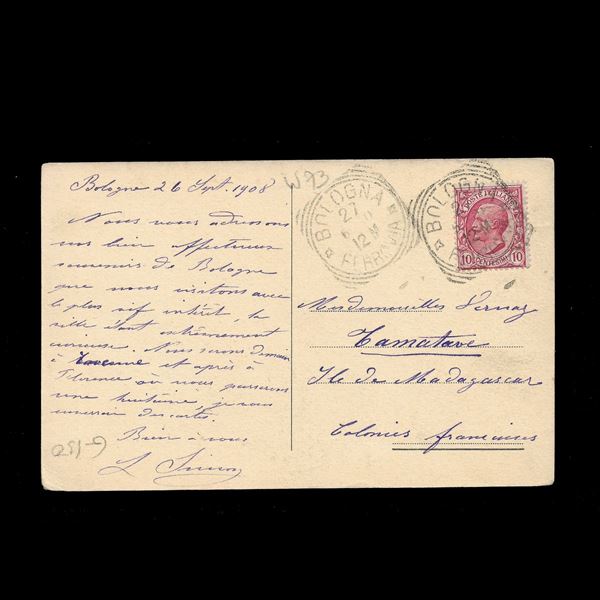 Bologne 26 Sept. 1908
Nous vous adressons
nos bien affectueux
souvenirs de Bologne
que nous visitons avec
le plus vif intérêt, la
ville étant extrêmement
curieuse. Nous serons demain
à et après à
Florence où nous passerons
une huitaine, je vous
enverrai des cartes.
Bien à vous
L Simon
W93
BOLOGNA
27
12 M
FERROVIA
BOLOGNA
POSTE ITALIANE
10 CENTESIMI 10
Mesdemoiselles
Tamatave
Ile de Madagascar
Colonies françaises
G-130